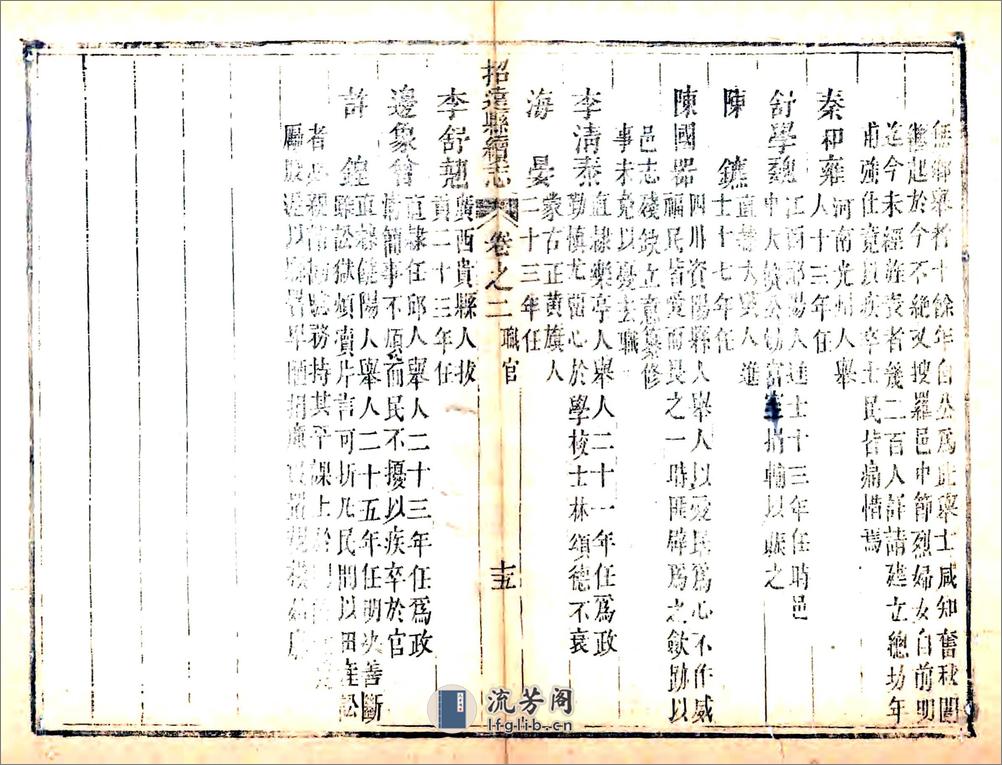 無鄉舉者十餘年自公爲此舉士咸知奮秋闈
繼起於今不絶又搜羅邑中節烈婦女自前明
迄今未經旌表者幾二百人詳請建立總坊年
甫強仕竟以疾卒士民皆痛惜焉
秦和雍 河南光州人舉
人十三年任
舒學魏 江西
人進士十三年任時邑
中大饑公勸富室捐輸以賑之
陳鑣 直隸大興人進
士十七年任
陳國器 四川資陽縣人舉人以愛民爲心不作威
福民皆愛而畏之一時匪辟爲之歛跡以
邑志殘缺立意纂修
事未竟以憂去職
李清泰 直隸樂亭人舉人二十一年任爲政
勤慎尤留心於學校士林頌德不衰
海晏 蒙古正黃旗人
二十三年任
招遠縣續志 卷之二 職官 十五
李舒翹 廣西貴縣人拔
貢二十三年任
邊象曾 直隸任邱人舉人二十三年任爲政
清簡事不煩而民不擾以疾卒於官
許鍠 直隸饒陽人舉人二十五年任明決善斷
雖訟獄煩賾片言可折凡民間以田產訟
者必親 勘驗務持其平課士於